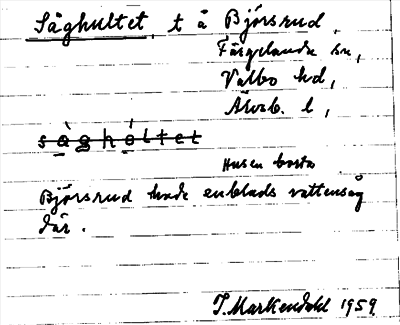 Såghultet, t å Björsrud,
Färgelanda sn,
Valbo hd,
Älvsb. l,
sàghóltet
Husen borta
Björsrud hade enblads vattensåg
där.
1959